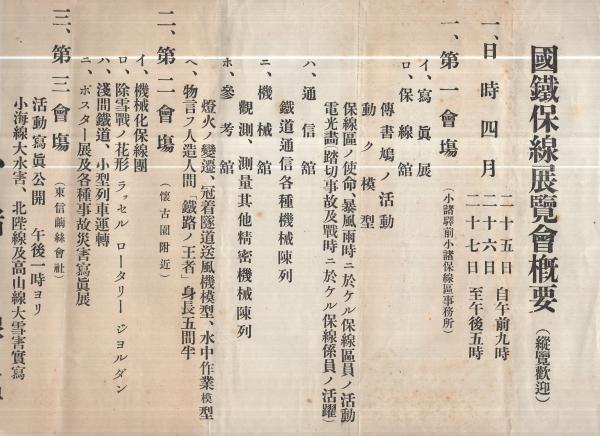 國鐵保線展覽會概要（縱覽歡迎）
一、日時 四月
二十五日
二十六日
二十七日
自午前九時
至午後五時
一、第一會場（小諸驛前小諸保線區事務所）
イ、寫眞展
ロ、保線舘
傳書鳩ノ活動
動ク模型
保線區ノ使命、暴風雨時ニ於ケル保線區員ノ活動
電光畵、踏切事故及戰時ニ於ケル保線係員ノ活躍）
ハ、通信舘
鐵道通信各種機械陳列
ニ、機械舘
觀測、測量其他精密機械陳列
ホ、參考舘
燈火ノ變遷、冠着隧道送風機模型、水中作業模型
ヘ、物言フ人造人間「鐵路ノ王者」身長五間半
二、第二會場（懷古園附近）
イ、機械化保線團
ロ、除雪戰ノ花形 ラッセル ロータリー ジョルダン
ハ、淺間鐵道、小型列車運轉
ニ、ポスター展及各種事故災害寫眞展
三、第三會場（東信繭絲會社）
活動寫眞公開 午後一時ヨリ
小海線大水害、北陸線及高山線大雪害實寫